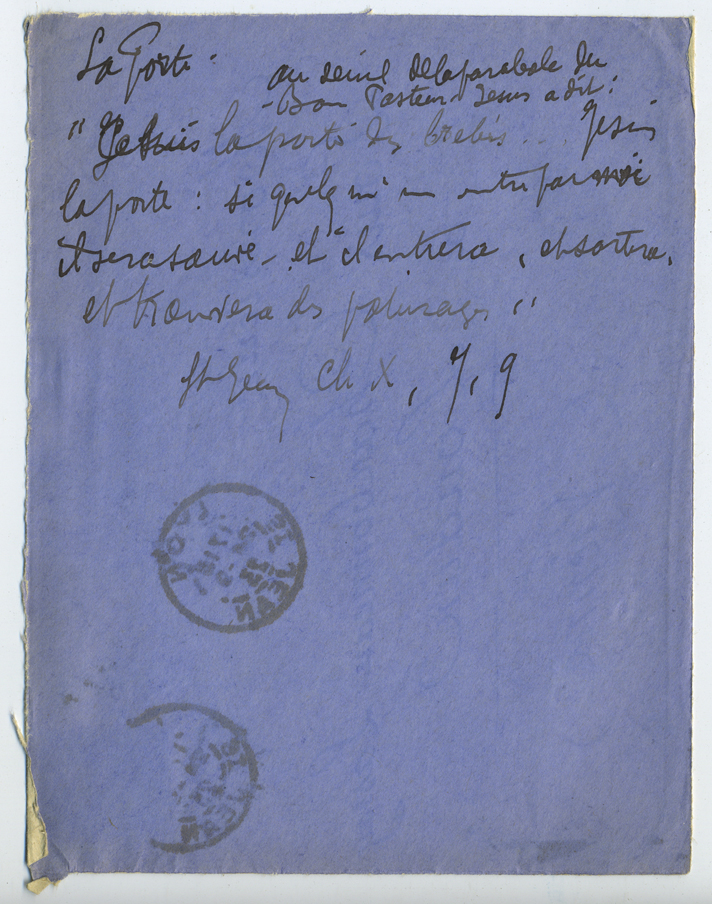 La Porte.
au seuil de la parabole du
Bon Pasteur Jésus a dit :
"Je suis la porte des brebis... Je suis
la porte : si quelqu'un entre par moi
il sera sauvé - et il entrera, et sortira,
et trouvera des pâturages"
St Jean Ch X, 7, 9
LYON
ST JEAN
ST JEAN